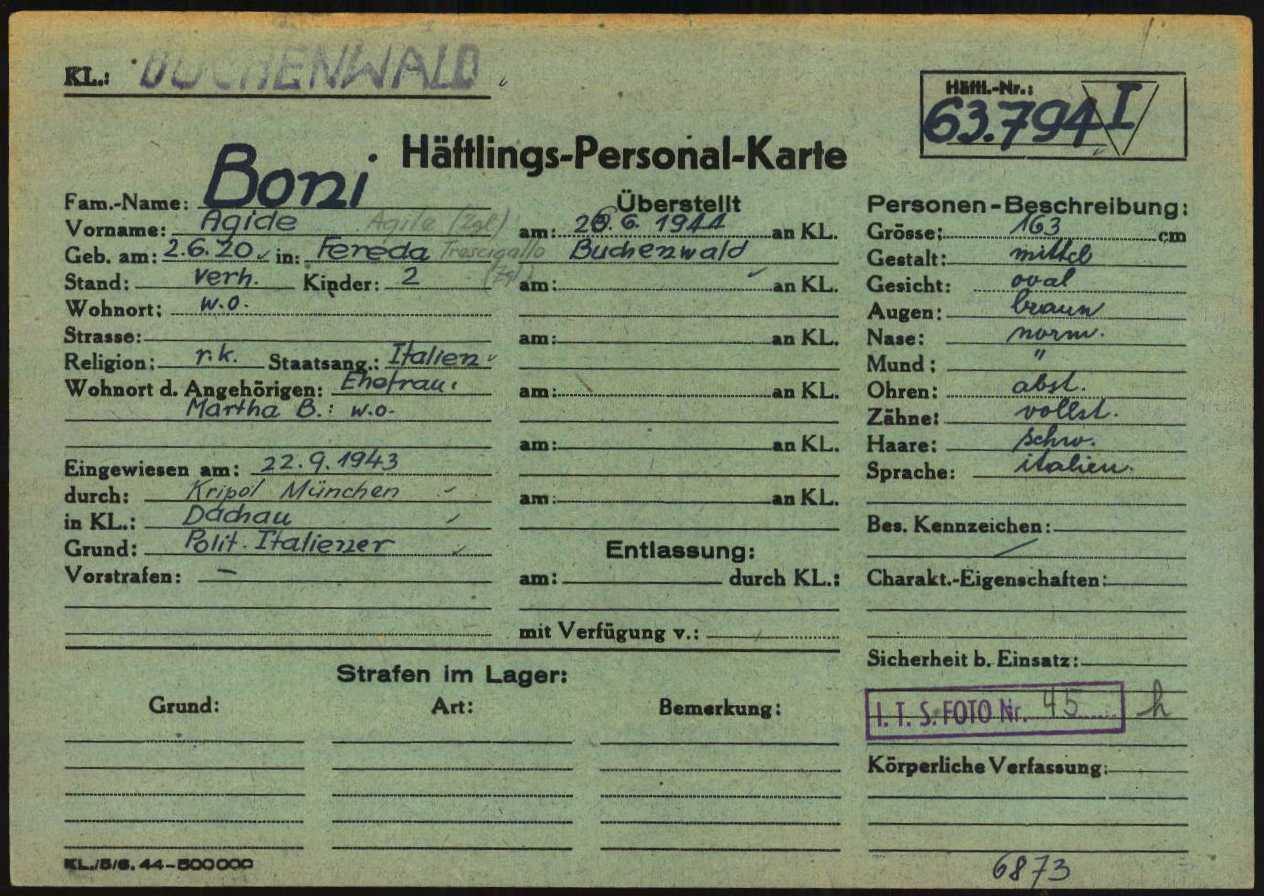 KL.: BUCHENWALD
Häftl.-Nr.:
63.794 I
Häftlings-Personal-Karte
Fam.-Name: Boni
Vorname: Agide Agile (Zgl)
Geb. am: 2.6.20 in: Fereda Trescigallo
Stand: verh. Kinder: 2
Wohnort: w.o.
Strasse:
Religion: r.k. Staatsang.: Italien
Wohnort d. Angehörigen: Ehefrau:
Martha B.: w.o.
Eingewiesen am: 22.9.1943
durch: Kripol München
in KL.: Dachau
Grund: Polit. Italiener
Vorstrafen: –
Überstellt
am: 6. 1944 an KL.
Buchenwald
am: an KL.
am: an KL.
am: an KL.
am: an KL.
am: an KL.
Entlassung:
am: durch KL.:
mit Verfügung v.:
Personen-Beschreibung:
Grösse: 163 cm
Gestalt: mittel
Gesicht: oval
Augen: braun
Nase: norm.
Mund: "
Ohren: abst.
Zähne: vollst.
Haare: schw.
Sprache: italien.
Bes. Kennzeichen:
Charakt.-Eigenschaften:
Sicherheit b. Einsatz:
I. T. S. FOTO Nr. 45 h
Körperliche Verfassung:
Strafen im Lager:
Grund: Art: Bemerkung:
KL./5/6. 44-500000
6873